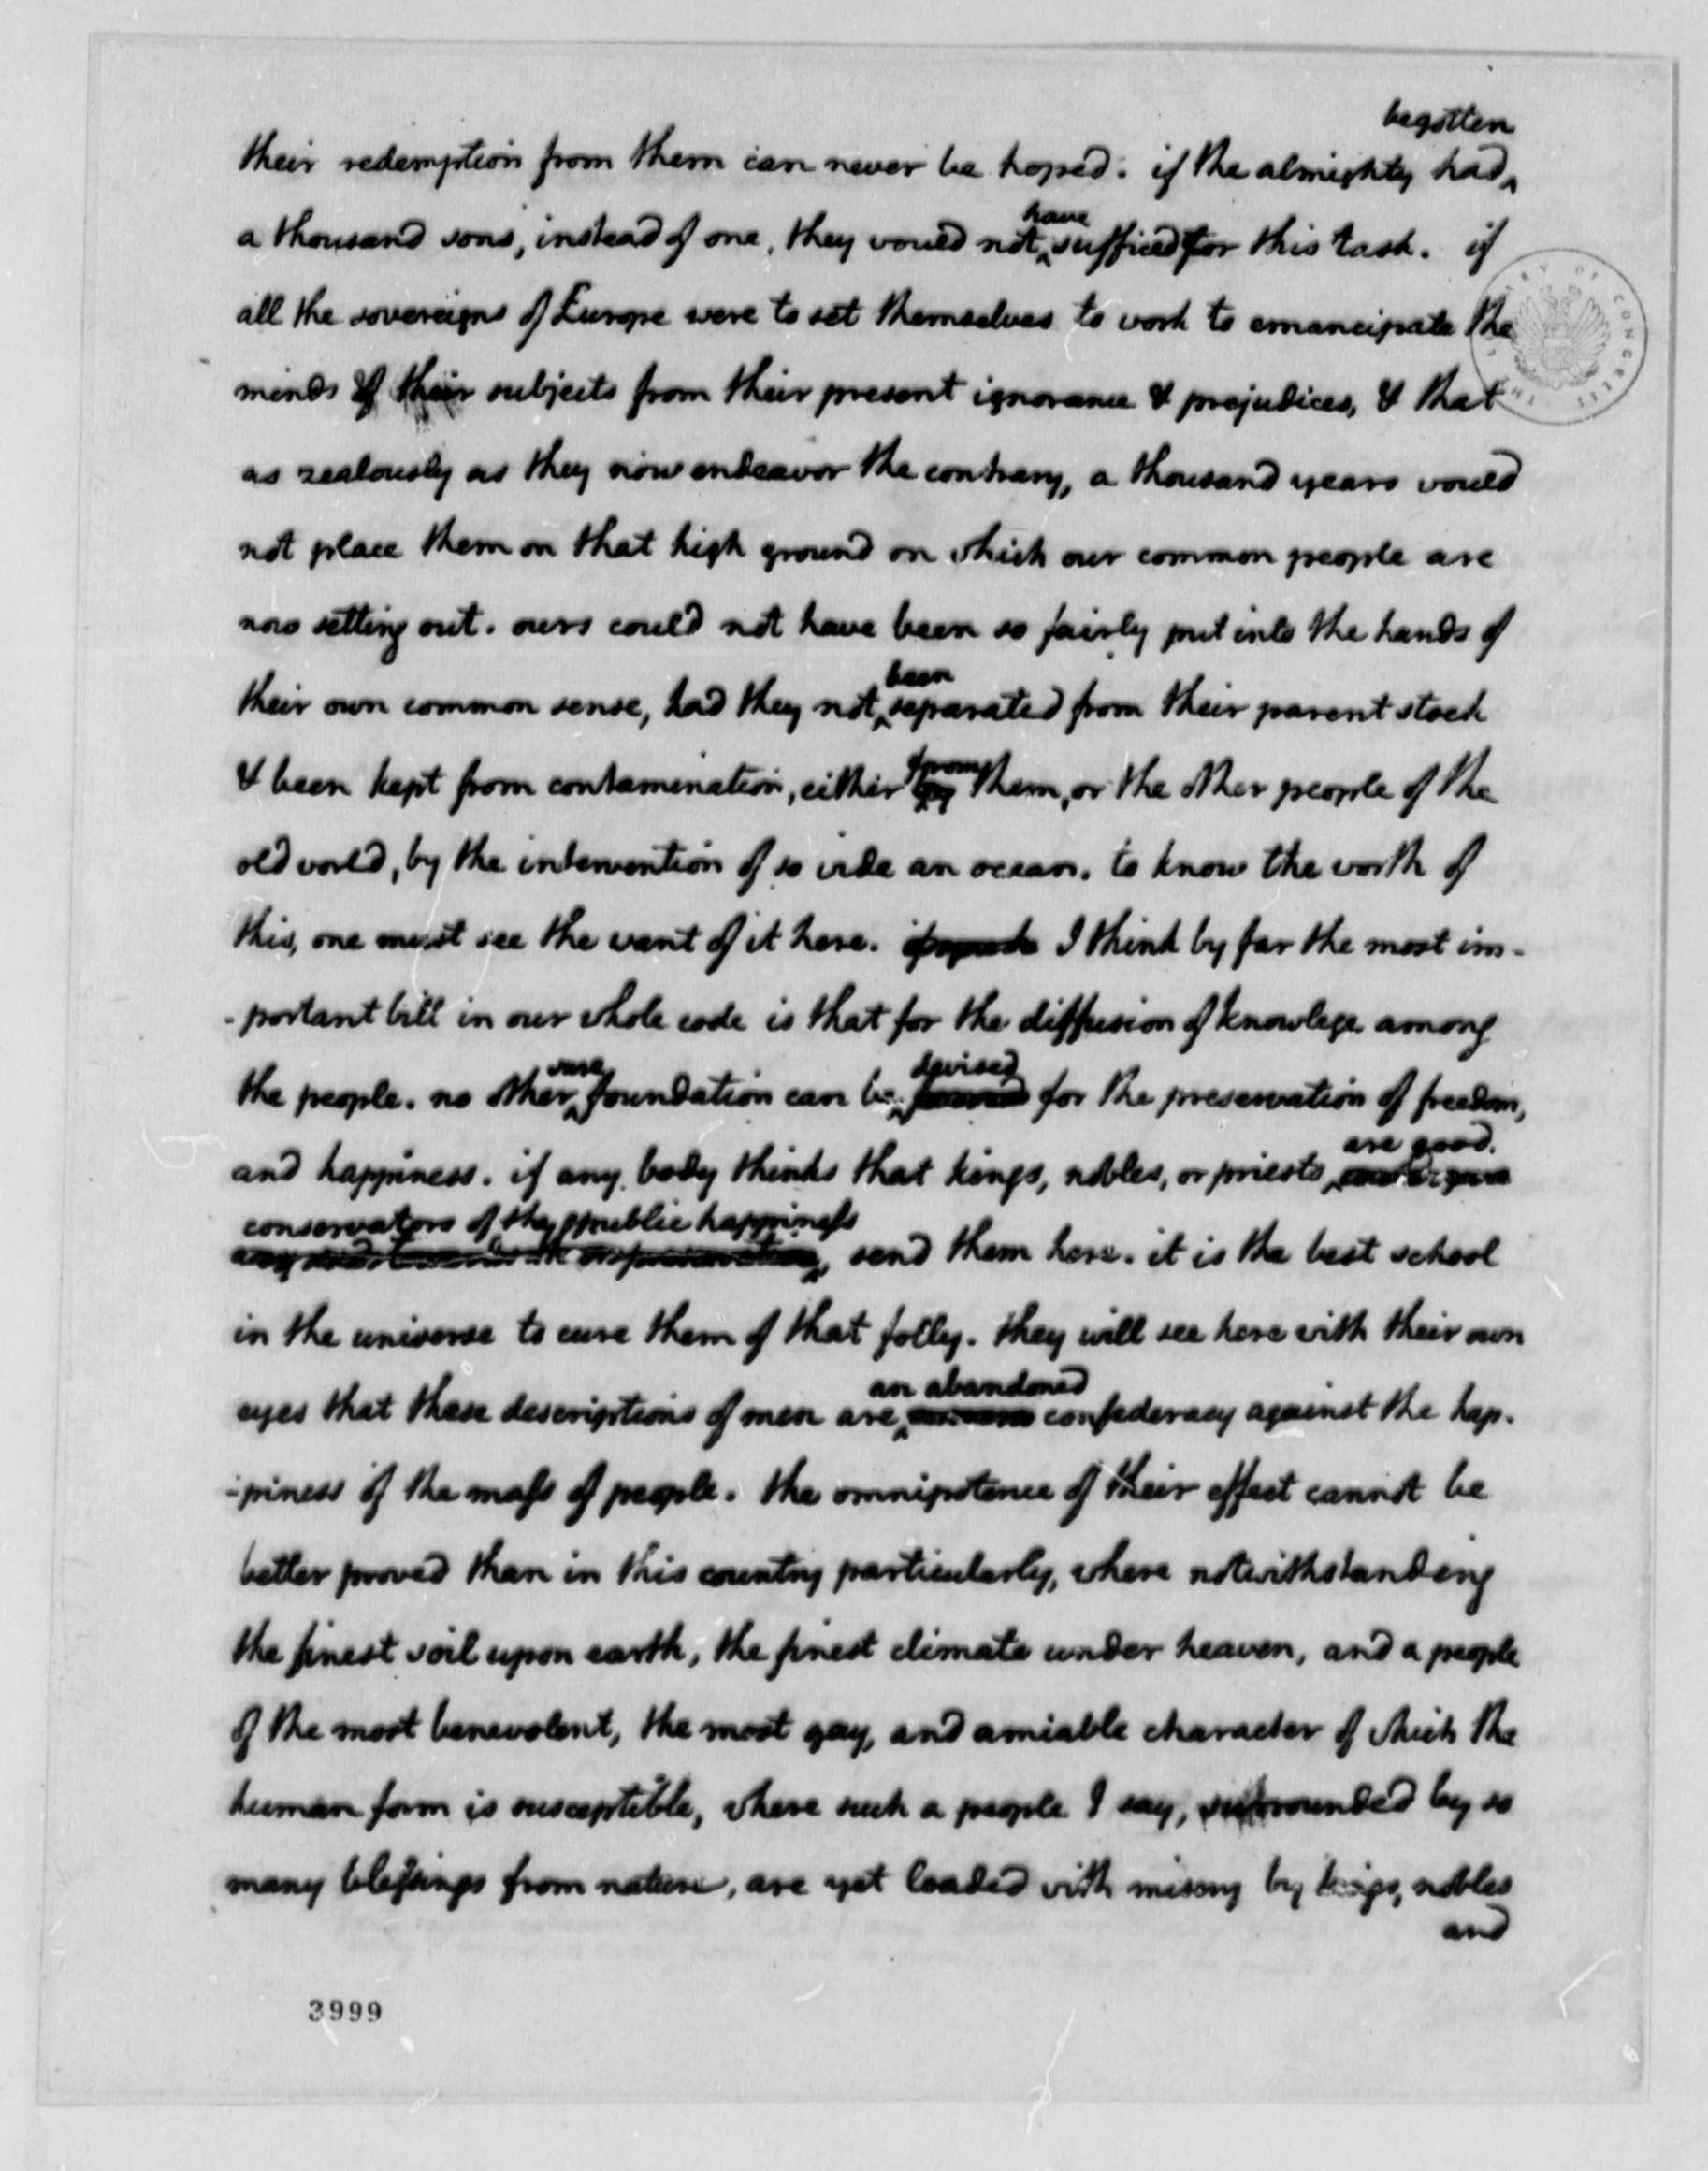 begotten
their redemption from them can never be hoped. if the almighty had
a thousand sons, instead of one, they would not have sufficed for this task. if
all the sovereigns of Europe were to set themselves to work to emancipate the
minds of their subjects from their present ignorance & prejudices, & that
as zealously as they now endeavor the contrary, a thousand years would
not place them on that high ground on which our common people are
now setting out. ours could not have been so fairly put into the hands of
their own common sense, had they not been separated from their parent stock
& been kept from contamination, either from them, or the other people of the
old world, by the intervention of so wide an ocean. to know the worth of
this, one must see the want of it here. I think by far the most im-
-portant bill in our whole code is that for the diffusion of knowlege among
the people. no other sure foundation can be devised for the preservation of freedom,
and happiness. if any body thinks that kings, nobles, or priests are good
conservators of the public happiness
send them here. it is the best school
in the universe to cure them of that folly. they will see here with their own
eyes that these descriptions of men are an abandoned confederacy against the hap-
-piness of the mass of people. the omnipotence of their effect cannot be
better proved than in this country particularly, where notwithstanding
the finest soil upon earth, the finest climate under heaven, and a people
of the most benevolent, the most gay, and amiable character of which the
human form is susceptible, where such a people I say, surrounded by so
many blessings from nature, are yet loaded with misery by kings, nobles
and
3999